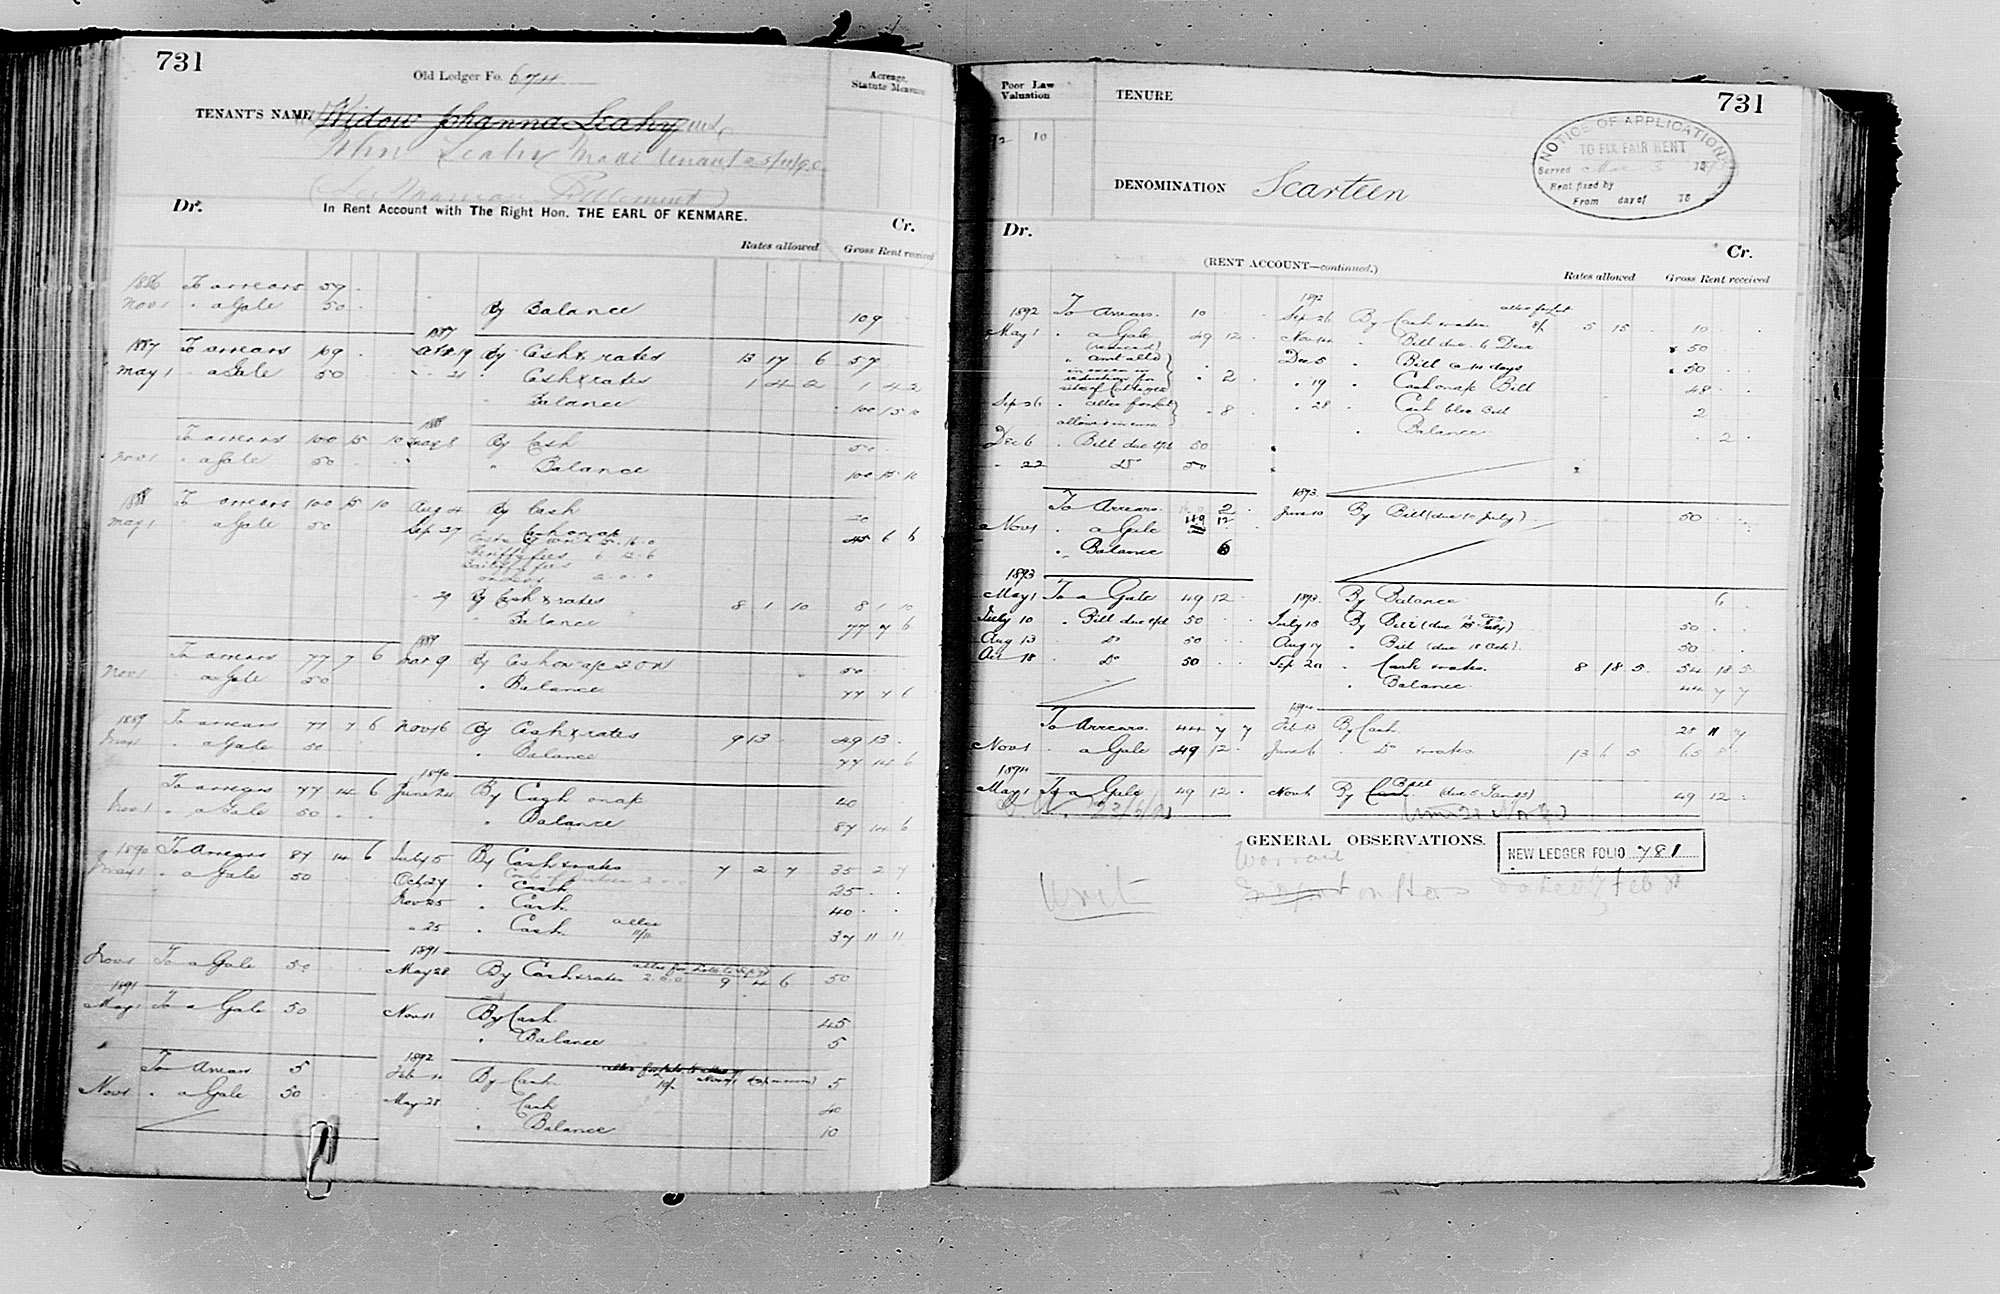 731
Old Ledger Fo. 674
Acreage, Statute Measure
TENANT'S NAME Widow Johanna Leahy
John Leahy made tenant 25/11/90
(See Marriage Settlement)
Dr. In Rent Account with The Right Hon. THE EARL OF KENMARE. Cr.
Rates allowed Gross Rent received
1886 To arrears 59
Nov 1 " a Gale 50 By Balance 109
1887
1887 To arrears 109 19 By Cash & rates 13 17 6 57
May 1 " a Gale 50 " 21 " Cash & rates 1 4 2 1 4 2
" Balance 100 15 10
1888
To arrears 100 15 10 May 8 By Cash 50
Nov 1 " a Gale 50 " Balance 100 15 10
1888 To arrears 100 15 10 Aug 4 By Cash 20
May 1 " a Gale 50 Sep 27 Cash on a/c 45 6 6
Sheriffs fees 6 12 6
Bailiffs fees
2 . 0 . 0
" 29 By Cash & rates 8 1 10 8 1 10
" Balance 77 7 6
1889
To arrears 77 7 6 Mar 9 By Cash on a/c 50
Nov 1 " a Gale 50 " Balance 77 7 6
1889 To arrears 77 7 6 Nov 16 By Cash & rates 9 13 49 13
May 1 " a Gale 50 " Balance 77 14 6
1890
To arrears 77 14 6 June 24 By Cash on a/c 40
Nov 1 " a Gale 50 " Balance 87 14 6
1890 To Arrears 87 14 6 July 5 By Cash & rates 7 2 7 35 2 7
May 1 " a Gale 50 Oct 27 " Cash 25
Nov 25 " Cash 40
" 25 " Cash 37 11 11
1891
Nov 1 To a Gale 50 May 28 By Cash & rates 2.0.0 9 4 6 50
1891
May 1 To a Gale 50 Nov 11 By Cash 45
" Balance 5
1892
To Arrears 5 Feb By Cash 5
Nov 1 " a Gale 50 May 28 " Cash 40
" Balance 10
Poor Law Valuation
TENURE
731
92 10
DENOMINATION Scarteen
NOTICE OF APPLICATION
TO FIX FAIR RENT
Served Mar 3 18
Rent fixed by
From day of 18
Dr. Cr.
(RENT ACCOUNT—continued.)
Rates allowed Gross Rent received
1892
1892 To Arrears 10 Sep 26 By Cash & rates 5 15 10
May 1 " a Gale 49 12 Nov 14 " Bill due 6 Dec 50
(reduced)
" amt alld 2 Dec 5 " Bill @ 14 days 50
in excess in
reduction for
site of Cottages
" 19 " Cash on a/c Bill 48
Sep 26 8 " 28 " Cash bloe Bill 2
allowed in excess " Balance 2
Dec 6 " Bill due 50
" 22 Do 50
1893
To Arrears 2 June 10 By Bill (due 10 July) 50
Nov 1 " a Gale 49 12
" Balance 6
1893
May 1 To a Gale 49 12 1893 By Balance 6
July 10 " Bill due 50 July 18 By Bill (due 50
Aug 13 Do 50 Aug 17 " Bill (due 18 Oct) 50
Oct 18 Do 50 Sep 20 " Cash & rates 8 18 5 54 18 5
" Balance 44 7 7
1894
To Arrears 44 7 7 Feb 13 By Cash 28 11 7
Nov 1 " a Gale 49 12 June 6 " Do & rates 13 6 5 65
1894
May 1 To a Gale 49 12 Nov 6 By Bill (due 49 12
GENERAL OBSERVATIONS.
NEW LEDGER FOLIO 781
Writ
Warrant